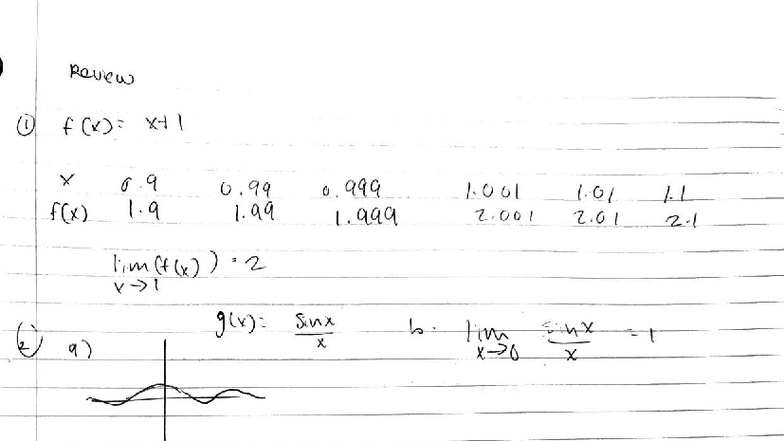 Review
① f(x) = x+1
x 0.9 0.99 0.999 1.001 1.01 1.1
f(x) 1.9 1.99 1.999 2.001 2.01 2.1
lim (f(x)) = 2
x→1
② a) g(x) = sinx/x b. lim sinx/x = 1
x→0